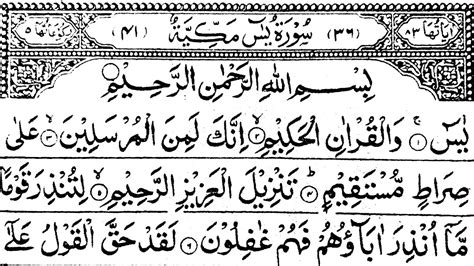 اٰیَاتُهَا ٨٣ (٣٦) سُوْرَةُ یٰسٓ مَكِّیَّةٌ (٤١) رُكُوْعَاتُهَا ٥
بِسْمِ اللّٰهِ الرَّحْمٰنِ الرَّحِیْمِ
یٰسٓ ۝١ وَالْقُرْاٰنِ الْحَكِیْمِ ۝٢ اِنَّكَ لَمِنَ الْمُرْسَلِیْنَ ۝٣ عَلٰی
صِرَاطٍ مُّسْتَقِیْمٍ ۝٤ؕ تَنْزِیْلَ الْعَزِیْزِ الرَّحِیْمِ ۝٥ لِتُنْذِرَ قَوْمًا
مَّاۤ اُنْذِرَ اٰبَآؤُهُمْ فَهُمْ غٰفِلُوْنَ ۝٦ لَقَدْ حَقَّ الْقَوْلُ عَلٰۤی